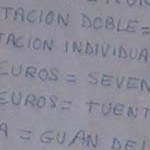 TACION DOBLE=
TACION INDIVIDUA
EUROS = SEVEN
EUROS= TUENT
A = GUAN DEI